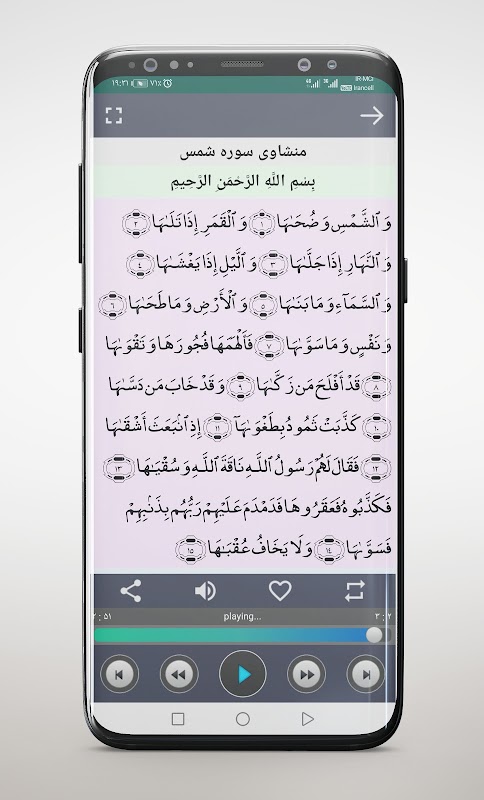 ۱۹:۲۱ ۷۱٪ IR-MCI
Irancell
منشاوی سوره شمس
بِسْمِ اللَّهِ الرَّحْمَنِ الرَّحِيمِ
وَٱلشَّمْسِ وَضُحَىٰهَا ١ وَٱلْقَمَرِ إِذَا تَلَىٰهَا ٢
وَٱلنَّهَارِ إِذَا جَلَّىٰهَا ٣ وَٱلَّيْلِ إِذَا يَغْشَىٰهَا ٤
وَٱلسَّمَآءِ وَمَا بَنَىٰهَا ٥ وَٱلْأَرْضِ وَمَا طَحَىٰهَا ٦
وَنَفْسٍ وَمَا سَوَّىٰهَا ٧ فَأَلْهَمَهَا فُجُورَهَا وَتَقْوَىٰهَا
٨ قَدْ أَفْلَحَ مَن زَكَّىٰهَا ٩ وَقَدْ خَابَ مَن دَسَّىٰهَا
١٠ كَذَّبَتْ ثَمُودُ بِطَغْوَىٰهَآ ١١ إِذِ ٱنۢبَعَثَ أَشْقَىٰهَا
١٢ فَقَالَ لَهُمْ رَسُولُ ٱللَّهِ نَاقَةَ ٱللَّهِ وَسُقْيَٰهَا ١٣
فَكَذَّبُوهُ فَعَقَرُوهَا فَدَمْدَمَ عَلَيْهِمْ رَبُّهُم بِذَنۢبِهِمْ
فَسَوَّىٰهَا ١٤ وَلَا يَخَافُ عُقْبَٰهَا ١٥
۲ : ۵۱ playing... ۳ : ۲